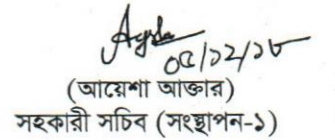 ০৫/১২/১৮
(আয়েশা আক্তার)
সহকারী সচিব (সংস্থাপন-১)